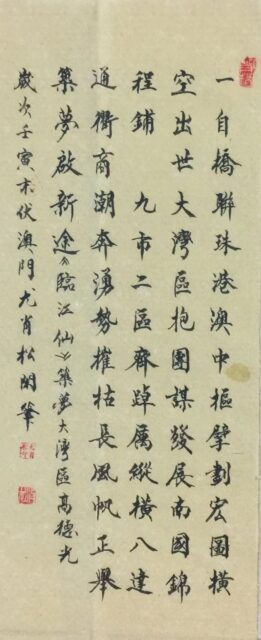 一自橋聯珠港澳中樞擘劃宏圖橫
空出世大灣區抱團謀發展南國錦
程鋪　九市二區齊踔厲縱橫八達
通衢商潮奔湧勢摧枯長風帆正舉
築夢啟新途《臨江仙》築夢大灣區高德光
歲次壬寅末伏澳門尤肖松開筆